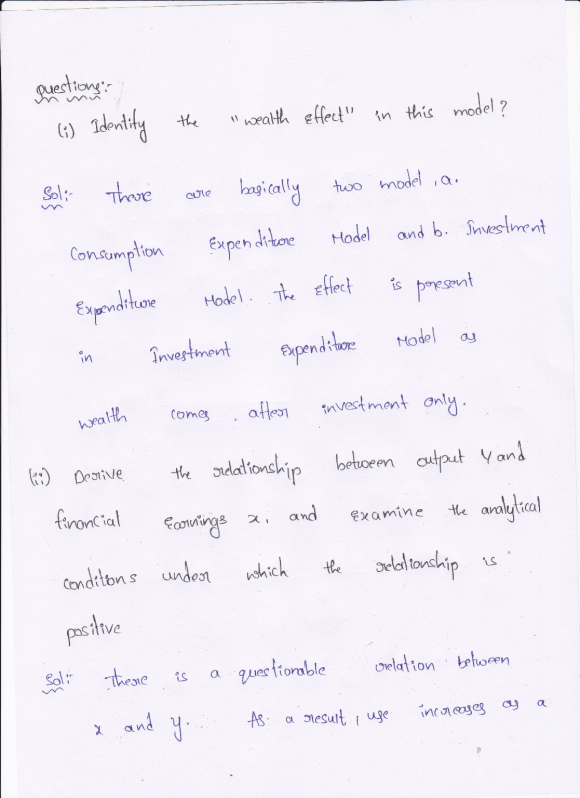 questions:-
(i) Identify the "wealth Effect" in this model?
Sol:- There are basically two model, a.
Consumption Expenditure Model and b. Investment
Expenditure Model. The Effect is present
in Investment Expenditure Model as
wealth comes after investment only.
(ii) Derive the relationship between output Y and
financial Earnings x, and Examine the analytical
conditions under which the relationship is
positive
Sol:- There is a questionable relation between
x and y. As a result, use increases as a